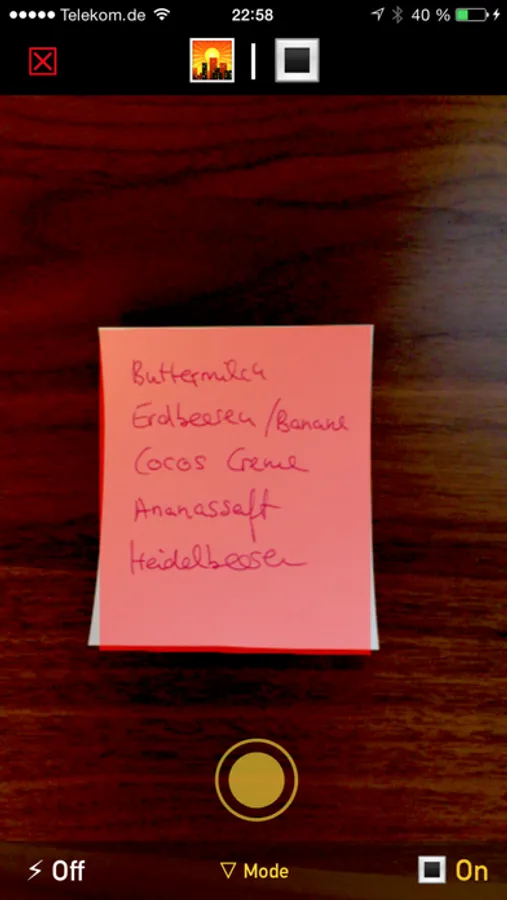 Telekom.de 22:58 40 %
Buttermilch
Erdbeeren/Banane
Cocos Creme
Ananassaft
Heidelbeeren
Off Mode On